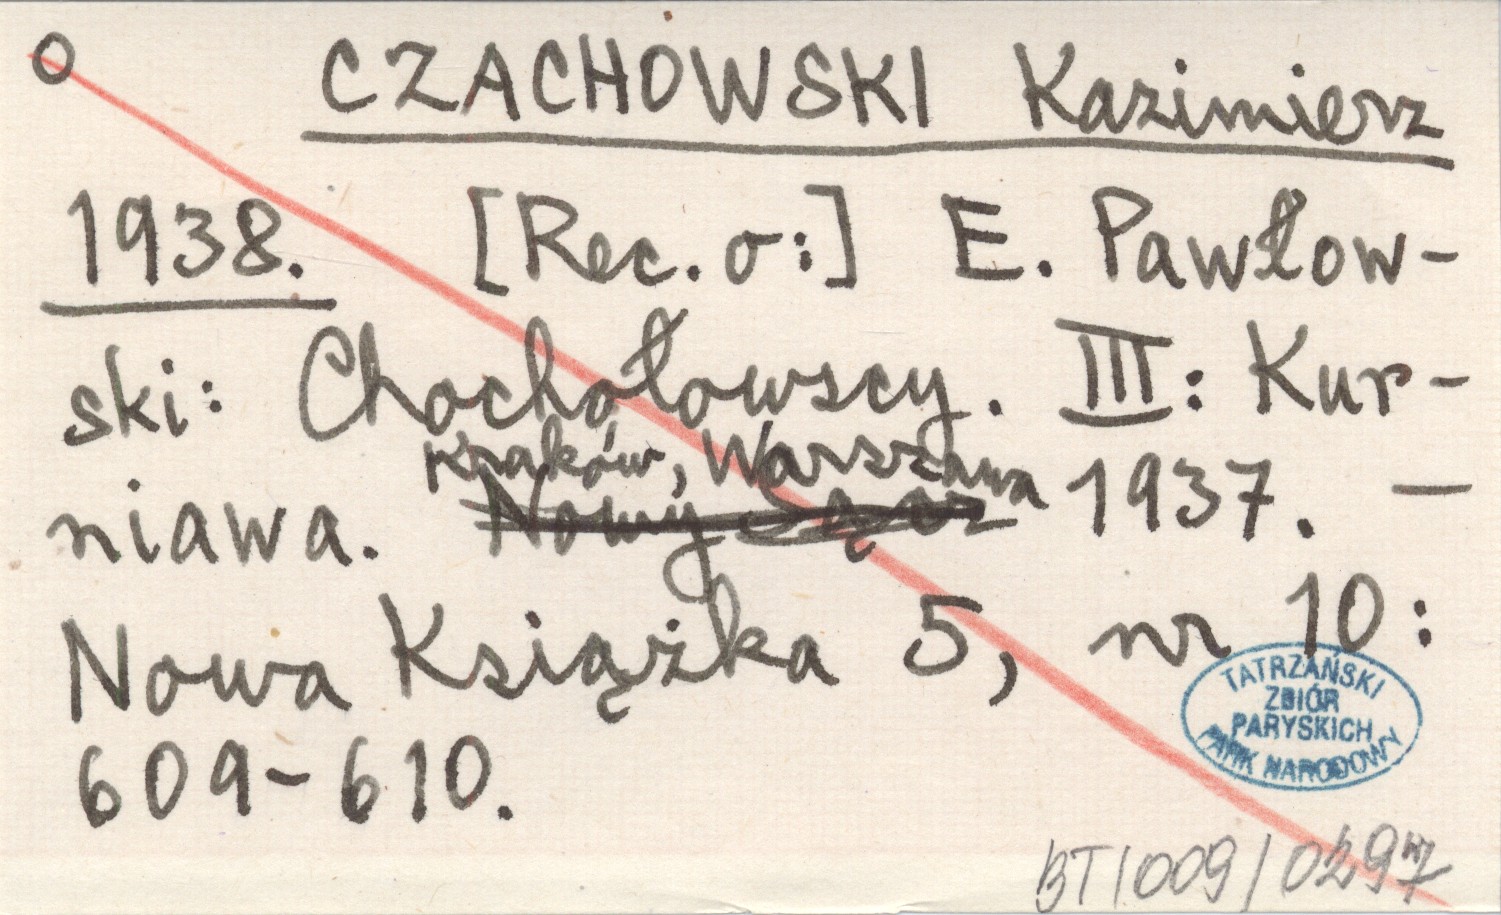 O CZACHOWSKI Kazimierz
1938. [Rec. o:] E. Pawłow-
ski: Chochołowscy. III: Kur-
Kraków, Warszawa
niawa. Nowy Sącz 1937. —
Nowa Książka 5, nr 10:
609-610.
TATRZAŃSKI
ZBIÓR
PARYSKICH
PARK NARODOWY
BT/009/0297